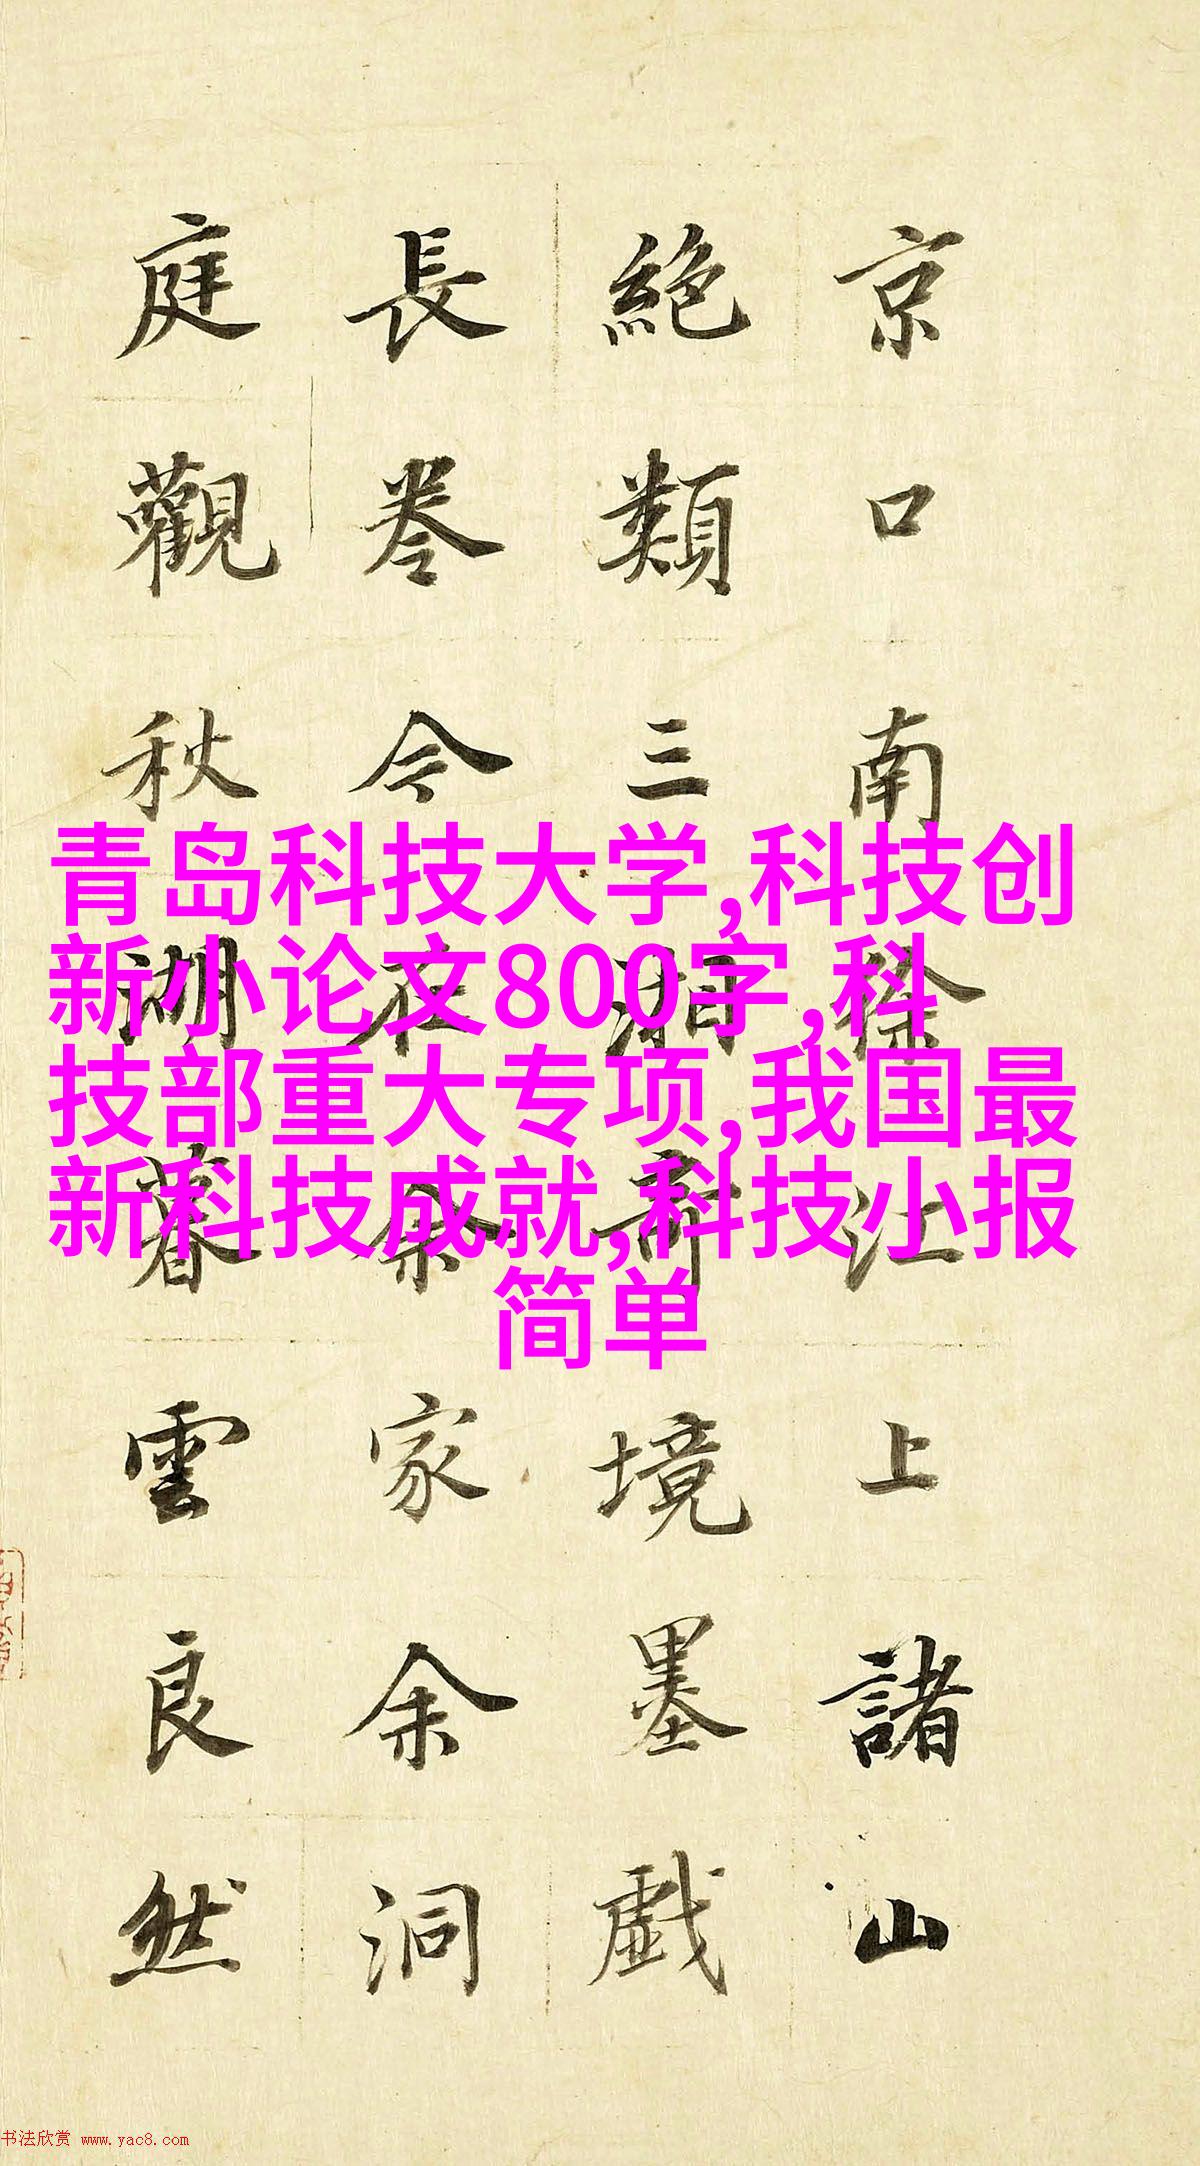 京口南徐江上諸山
絶類三湘奇境墨戯
長卷今在余家余洞
庭觀秋湖暮雲良然
青岛科技大学,科技创
新小论文800字,科
技部重大专项,我国最
新科技成就,科技小报
简单
书法欣赏 www.yac8.com